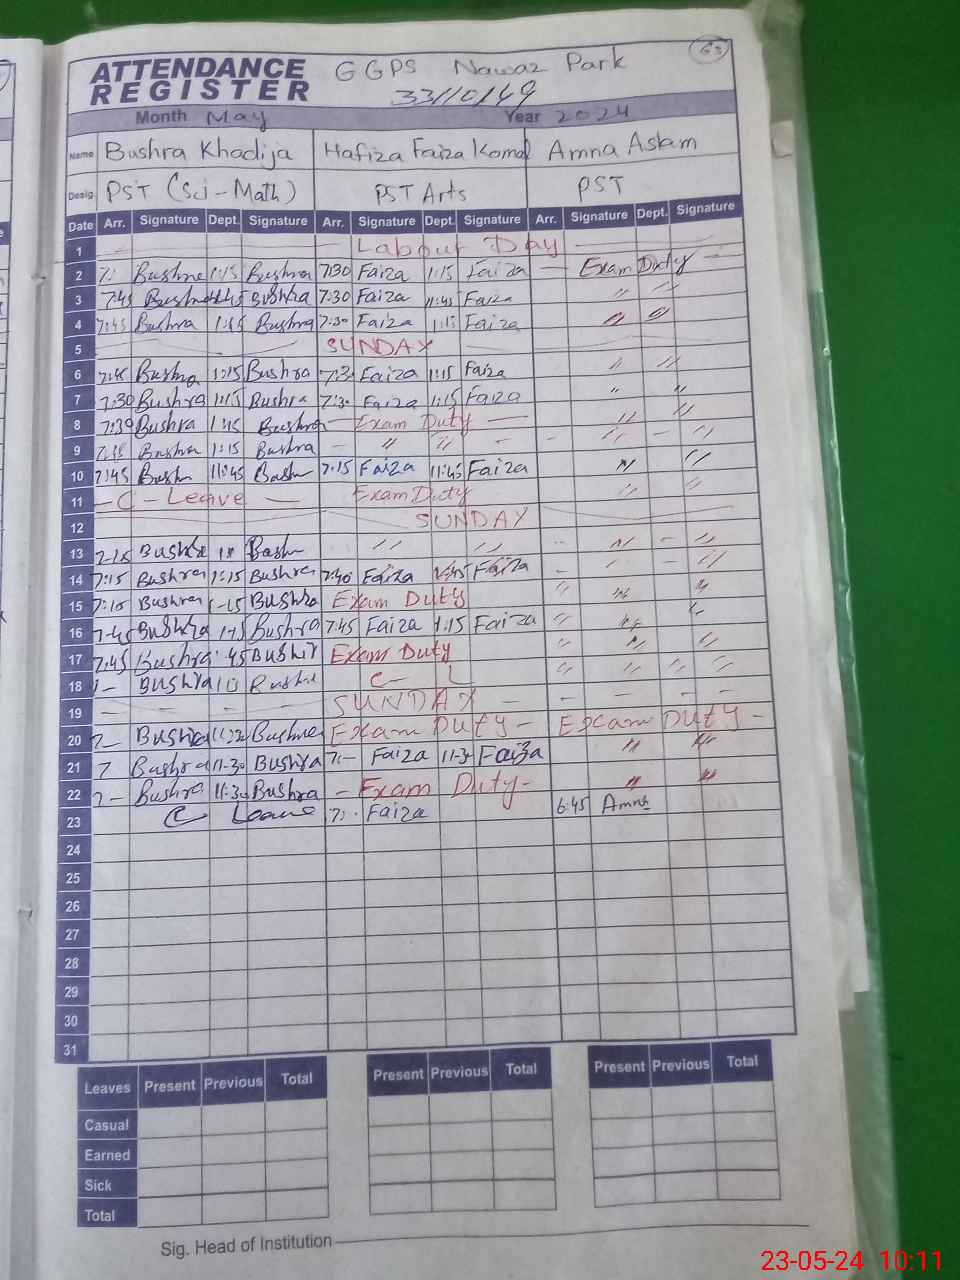 63
ATTENDANCE REGISTER
GGPS Nawaz Park
33110149
Month May Year 2024
Name Bushra Khadija Hafiza Faiza Komal Amna Aslam
Desig. PST (Sci-Math) PST Arts PST
Date Arr. Signature Dept. Signature Arr. Signature Dept. Signature Arr. Signature Dept. Signature
1 — Labour Day —
2 Bushra 1:15 Bushra 7:30 Faiza 1:15 Faiza — Exam Duty —
3 7:45 Bushra 11:45 Bushra 7:30 Faiza 11:45 Faiza " "
4 7:45 Bushra 1:15 Bushra 7:30 Faiza 1:15 Faiza " "
5 SUNDAY
6 7:45 Bushra 1:15 Bushra 7:30 Faiza 1:15 Faiza " "
7 7:30 Bushra 1:15 Bushra 7:30 Faiza 1:15 Faiza " "
8 7:30 Bushra 1:15 Bushra — Exam Duty — " "
9 Bushra 1:15 Bushra — " " — — " — "
10 7:45 Bush 11:45 Bush 7:15 Faiza 11:45 Faiza " "
11 — C - Leave — Exam Duty " "
12 SUNDAY
13 7:15 Bushra Bush " " — " — "
14 7:15 Bushra 1:15 Bushra 7:40 Faiza Faiza — " — "
15 7:15 Bushra 1-15 Bushra Exam Duty " " "
16 7-45 Bushra 1-15 Bushra 7:45 Faiza 1:15 Faiza " " "
17 7:45 Bushra Bushra Exam Duty " " "
18 Bushra Bushra C - L " " " "
19 — — — — SUNDAY — — — — —
20 7— Bushra Bushra Exam Duty — Exam Duty —
21 7 Bushra 11-30 Bushra 7:— Faiza 11-30 Faiza " "
22 7— Bushra 11:30 Bushra — Exam Duty - " "
23 C Leave 7: Faiza 6:45 Amna
24
25
26
27
28
29
30
31
Leaves Present Previous Total Present Previous Total Present Previous Total
Casual
Earned
Sick
Total
Sig. Head of Institution
23-05-24 10:11